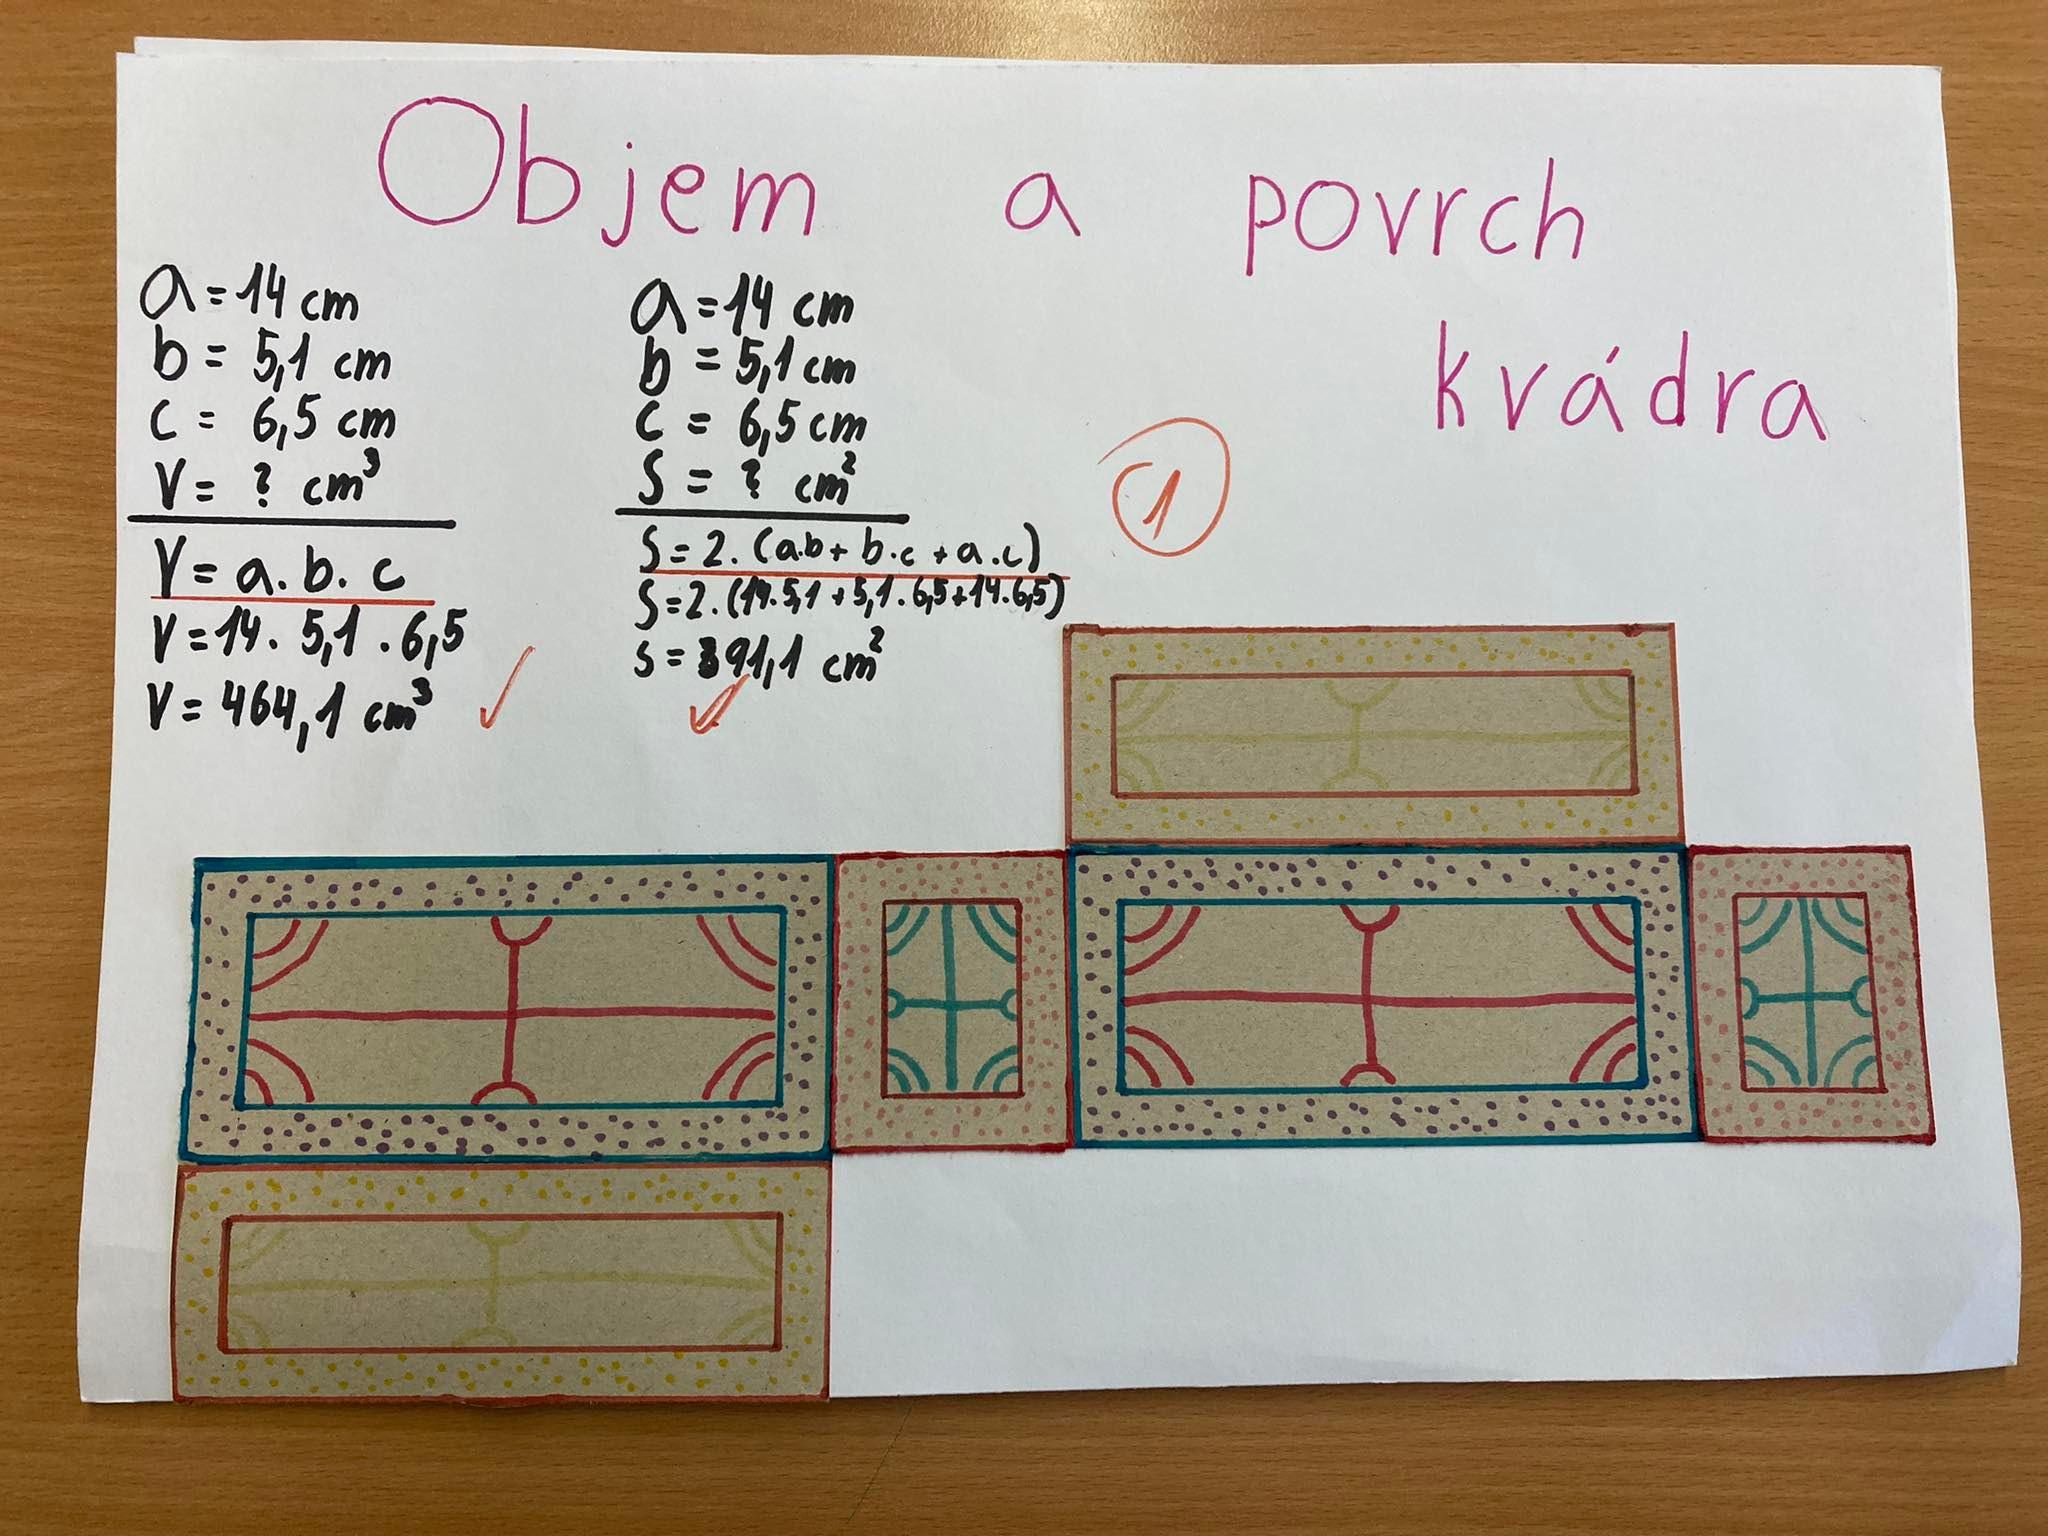 Objem a povrch
kvádra
a = 14 cm
b = 5,1 cm
c = 6,5 cm
V = ? cm³
V = a . b . c
V = 14 . 5,1 . 6,5
V = 464,1 cm³
a = 14 cm
b = 5,1 cm
c = 6,5 cm
S = ? cm²
S = 2 . (a.b + b.c + a.c)
S = 2 . (14.5,1 + 5,1 . 6,5 + 14.6,5)
S = 391,1 cm²
1